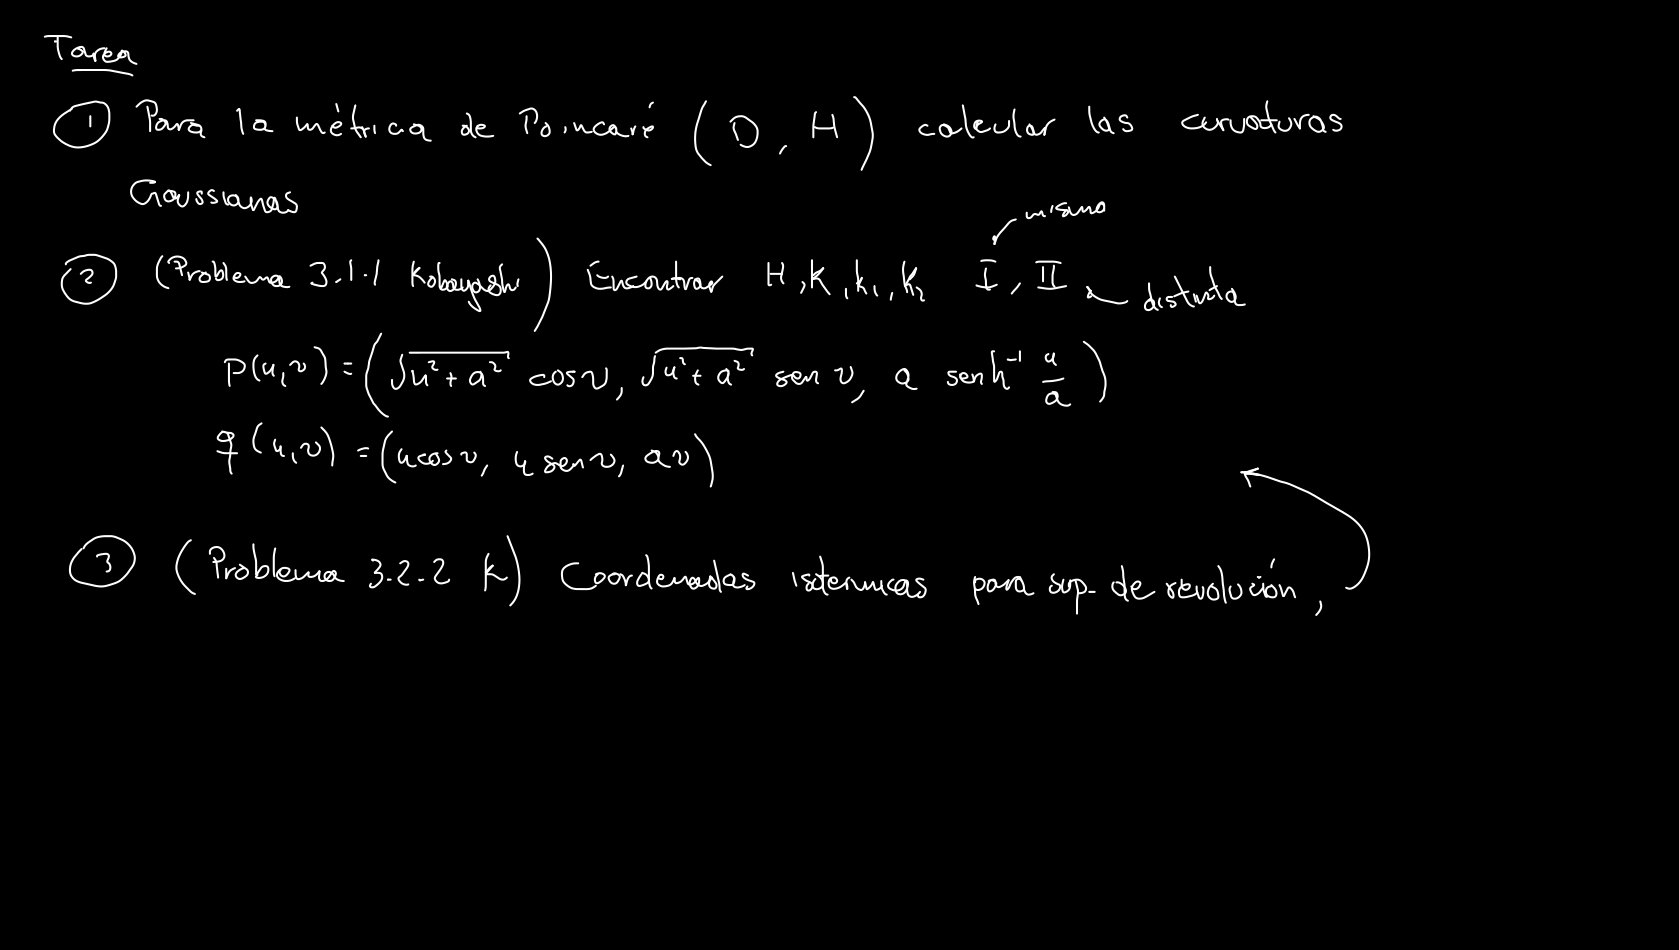 Tarea
① Para la métrica de Poincaré (D, H) calcular las curvaturas
Gaussianas
mismo
② (Problema 3.1.1 Kobayashi) Encontrar H, K, k₁, k₂ I, II distinta
p(u,v) = (√(u²+a²) cos v, √(u²+a²) sen v, a senh⁻¹ u/a)
q(u,v) = (u cos v, u sen v, av)
③ (Problema 3.2.2 K) Coordenadas isotermicas para sup. de revolución,